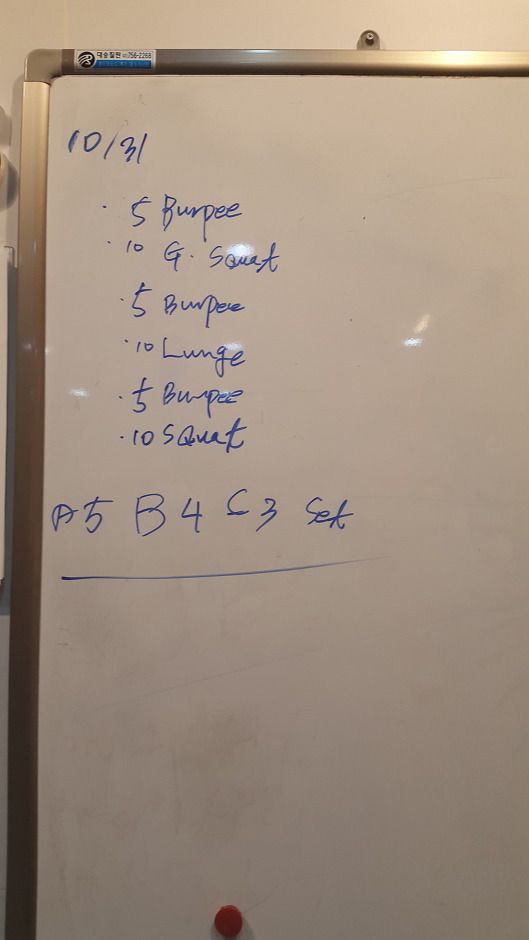 대승칠판 756-2268
10/31
· 5 Burpee
· 10 G. Squat
· 5 Burpee
· 10 Lunge
· 5 Burpee
· 10 SQuat
A5 B4 C3 Set